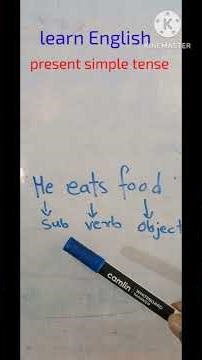 learn English
KINEMASTER
present simple tense
He eats food
sub verb object
camlin
WHITEBOARD
MARKER